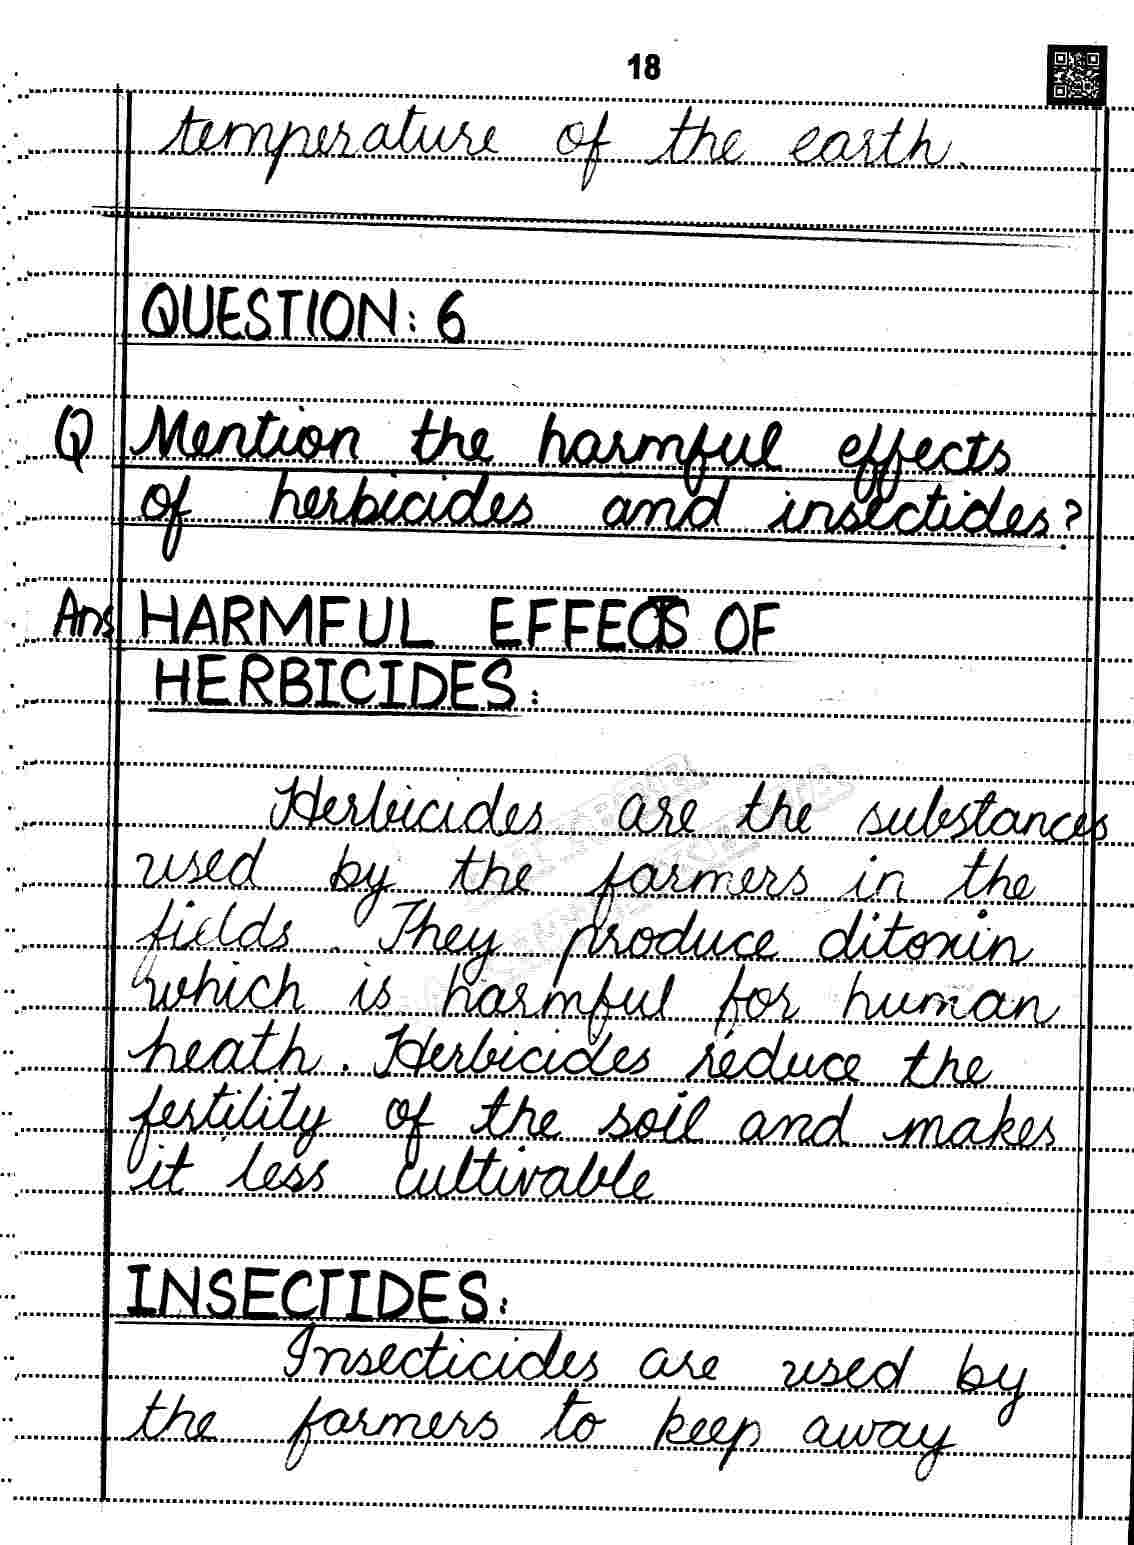 18
temperature of the earth.
QUESTION: 6
Q Mention the harmful effects
of herbicides and insectides?
Ans HARMFUL EFFECTS OF
HERBICIDES:
Herbicides are the substances
used by the farmers in the
fields. They produce ditoxin
which is harmful for human
heath. Herbicides reduce the
fertility of the soil and makes
it less cultivable
INSECTIDES:
Insecticides are used by
the farmers to keep away